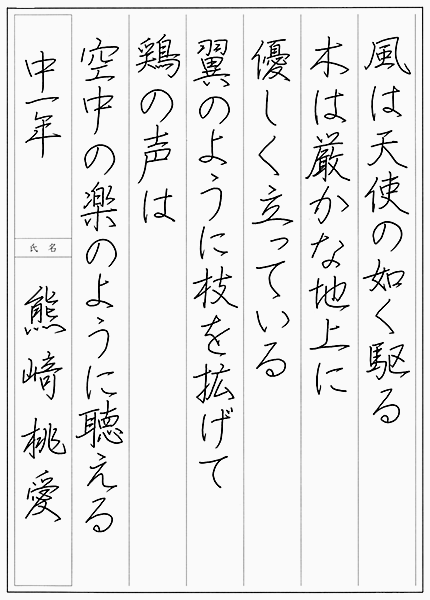 風は天使の如く駆る
木は厳かな地上に
優しく立っている
翼のように枝を拡げて
鶏の声は
空中の楽のように聴える
中一年
氏名
熊﨑桃愛